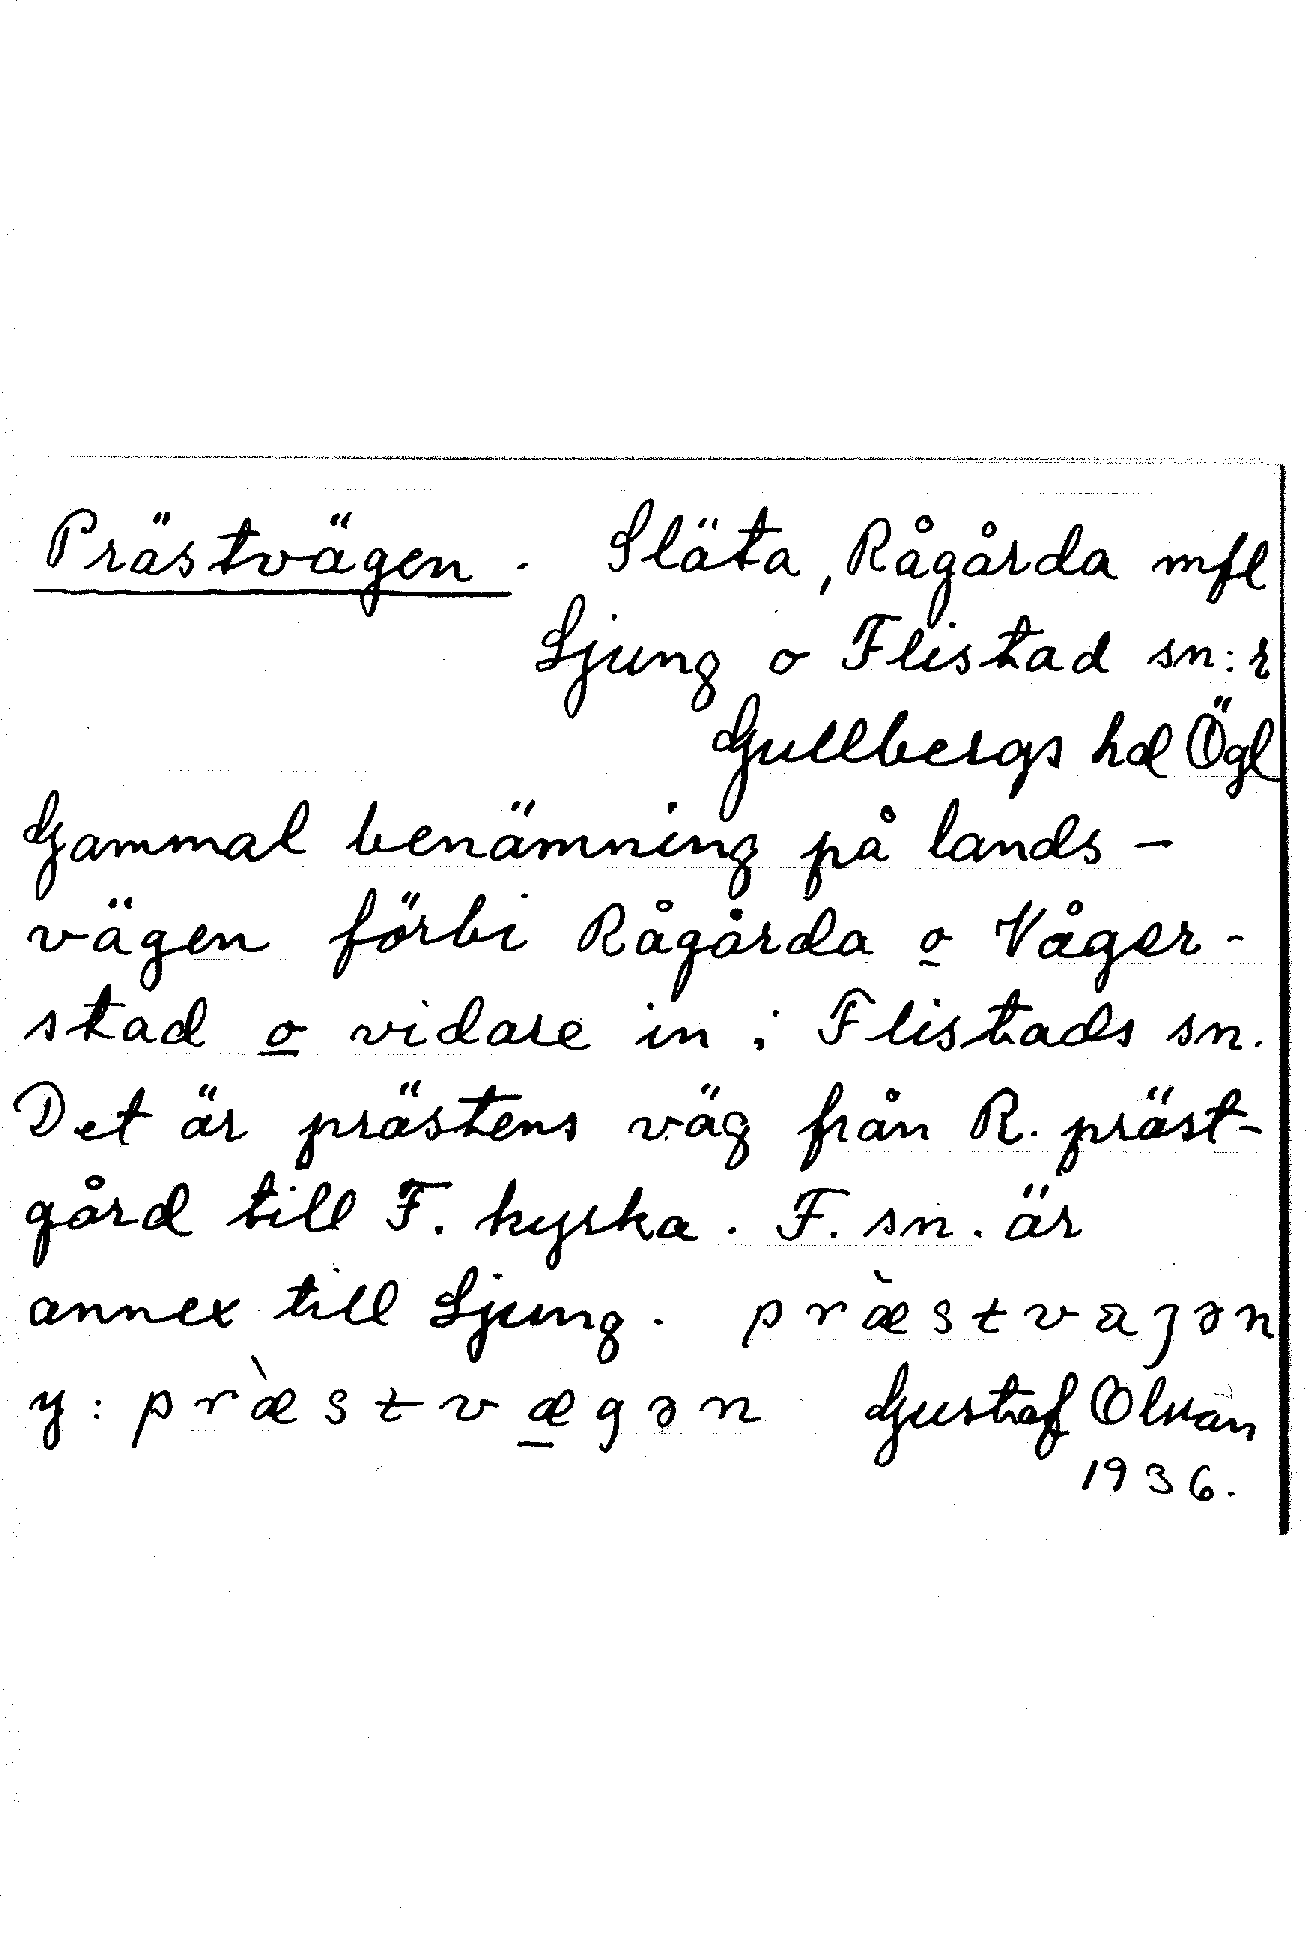 Prästvägen. Släta, Rågårda mfl
Ljung o Flistad sn:r
Gullbergs hd Ögl
Gammal benämning på lands-
vägen förbi Rågårda o Våger-
stad o vidare in i Flistads sn.
Det är prästens väg från R. präst-
gård till F. kyrka. F. sn. är
annex till Ljung. præ̀stvaȷən
y: præ̀stvæ̲gən Gustaf Olsson
1936.